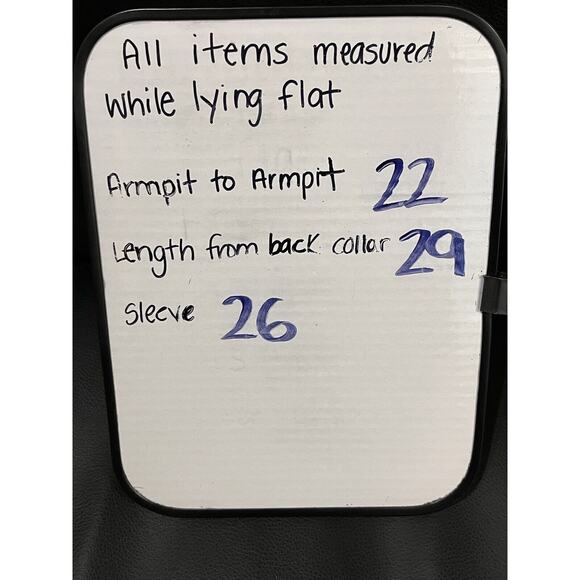 All items measured
while lying flat
Armpit to Armpit 22
Length from back collar 29
Sleeve 26